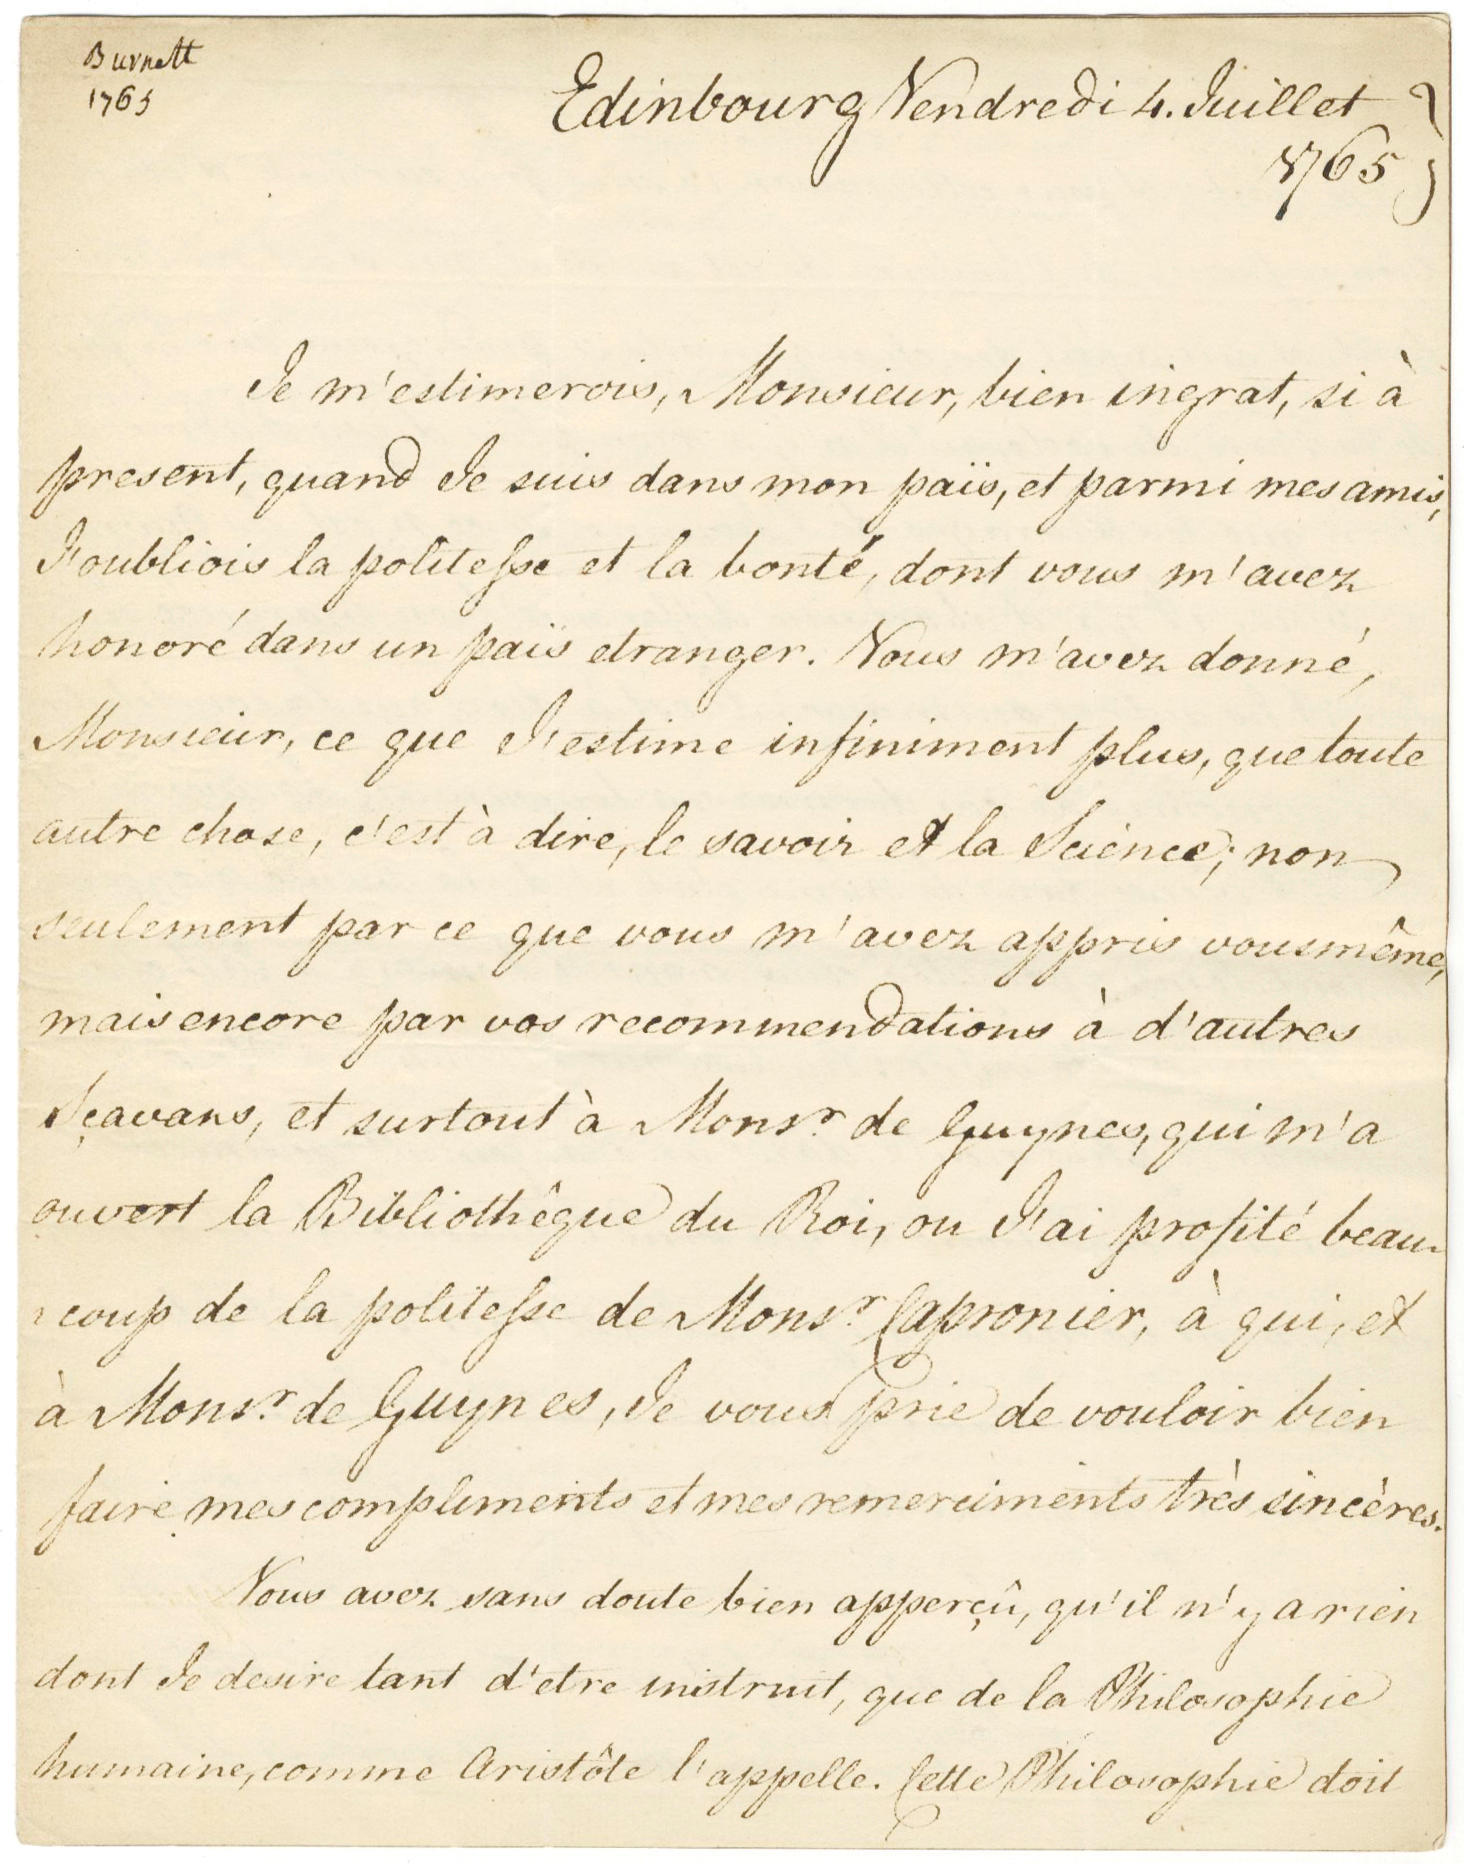 Burnett
1765
Edinbourg Vendredi 4. Juillet
1765
Je m'estimerois, Monsieur, bien ingrat, si à
present, quand Je suis dans mon païs, et parmi mes amis,
J'oubliois la politesse et la bonté, dont vous m'avez
honoré dans un païs etranger. Vous m'avez donné,
Monsieur, ce que J'estime infiniment plus, que toute
autre chose, c'est à dire, le savoir et la Science; non
seulement par ce que vous m'avez appris vousmême,
mais encore par vos recommendations à d'autres
Sçavans, et surtout à Monsr. de Guynes, qui m'a
ouvert la Bibliothêque du Roi, ou J'ai profité beau-
-coup de la politesse de Monsr. Capronier, à qui, et
à Monsr. de Guynes, Je vous prie de vouloir bien
faire mes compliments et mes remerciments très sincères.
Vous avez sans doute bien apperçû, qu'il n'y a rien
dont Je desire tant d'etre instruit, que de la Philosophie
humaine, comme Aristôte l'appelle. Cette Philosophie doit